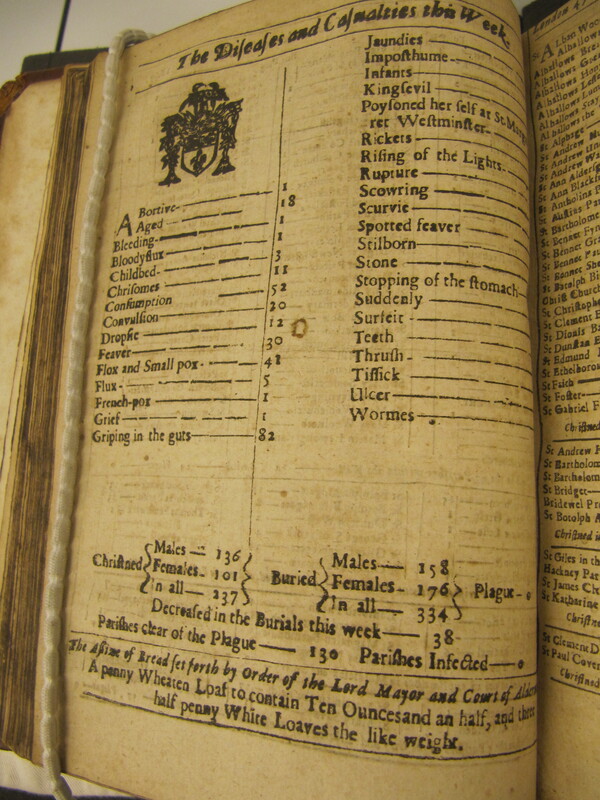 The Diseases and Casualties this Week.
Abortive 1
Aged 18
Bleeding 1
Bloodyflux 1
Childbed 3
Chrisomes 11
Consumption 52
Convulsion 20
Dropsie 12
Feaver 30
Flox and Small pox 41
Flux 5
French-pox 1
Grief 1
Griping in the guts 82
Jaundies
Imposthume
Infants
Kingsevil
Poysoned her self at St.
ret Westminster
Rickets
Rising of the Lights
Rupture
Scowring
Scurvie
Spotted feaver
Stilborn
Stone
Stopping of the stomach
Suddenly
Surfeit
Teeth
Thrush
Tissick
Ulcer
Wormes
Christned { Males 136 Females 101 In all 237 } Buried { Males 158 Females 176 In all 334 } Plague 0
Decreased in the Burials this week 38
Parishes clear of the Plague 130 Parishes Infected 0
The Assize of Bread set forth by Order of the Lord Mayor and Court of
A penny Wheaten Loaf to contain Ten Ounces and an half, and three
half penny White Loaves the like weight.
London
Alhallows
Alhallows
Alhallows
Alhallows
Alhallows
St Alphage
St Andrew
St Andrew
St Andrew
St Bennet
St Bennet
St Bennet
St Botolph
Christ Church
St Christophe
St Clement
St Dionis
St Dunstan
St Edmund
St Ethelboro
St Faith
St Foster
St Gabriel
Christned
St Andrew
St Bartholom
St Bartholom
St Bridget
Bridewel
St Botolph
Christned
St Giles in th
Hackney
St James
St Katharine
St Clement
St Paul
Christned